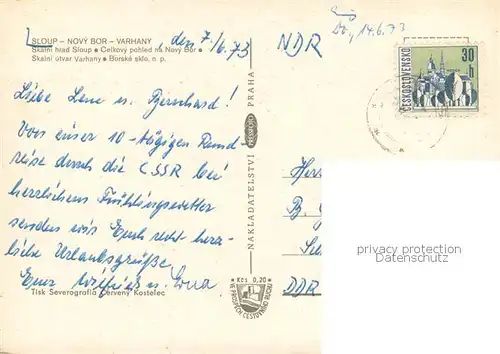 SLOUP – NOVÝ BOR – VARHANY
Skalní hrad Sloup • Celkový pohled na Nový Bor •
Skalní útvar Varhany • Borské sklo, n. p.
, den 7./6. 73
NDR
14.6.73
ČESKOSLOVENSKO
30 h
Liebe Lene u. Bernhard!
Von einer 10-tägigen Rund-
reise durch die CSSR bei
herrlichem Frühlingswetter
senden wir Euch recht herz-
liche Urlaubsgrüße
Eure Wilfried u. Erna
Tisk Severografia Červený Kostelec
NAKLADATELSTVÍ PRESSFOTO PRAHA
Kčs 0,20
VE PROSPĚCH CESTOVNÍHO RUCHU
Herr
B. G
DDR
privacy protection
Datenschutz